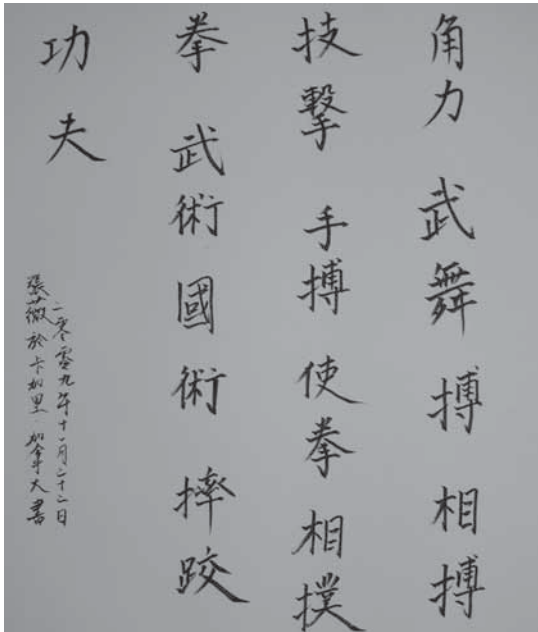 角力 武舞 搏 相搏
技擊 手搏 使拳 相撲
拳 武術 國術 摔跤
功夫
二零零九年十一月二十二日
張薇於卡加里 加拿大書